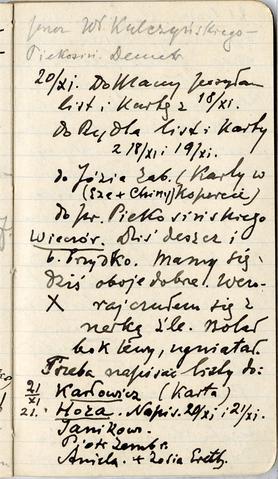 Wł. Kulczyńskiego –
Demetr
20/XI. Do Mamy posyłam
list i kartę z 18/XI.
Do Rydla list i karty
z 18/XI i 19/XI.
do Józia Zab. (Karty w
(Eze + Chiny) Kopercie)
do Pr. Piekosińskiego
Wieczór. Dziś deszcz i
b. brzydko. Mamy się
dziś oboje dobrze. Wczo-
X raj czułem się z
nerką źle. Bolał
bok lewy, ugniatał.
Trzeba napisać listy do:
21/XI Karłowicz (Karta)
21. Hoża. Napis. 20/XI i 21/XI.
Janikows.
Piotr Zembr.
Aniela. + Zosia